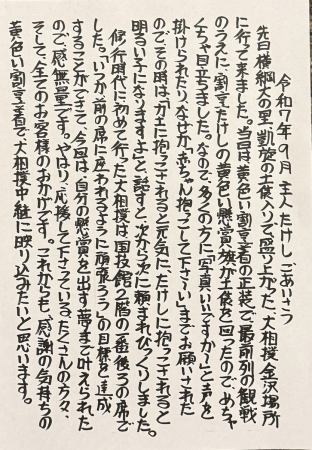 令和7年9月 主人たけし、ごあいさつ
先日横綱大の里凱旋の土俵入りで盛り上がった、大相撲金沢場所
に行って来ました。当日は黄色い割烹着の正装で、最前列の観戦
のうえに、割烹たけしの黄色い懸賞旗が土俵を回ったので、めちゃ
くちゃ目立ちました。なので、多くの方に「写真いいですか〜」と声を
掛けられたり、なぜか「赤ちゃん抱っこして下さ〜い」までお願いされた
のでその時は、「力士に抱っこされると元気に、たけしに抱っこされると
明るい子になりますよ」と、話すと、次から次に頼まれびっくりしました。
修行時代に初めて行った大相撲は国技館2階の一番後ろの席で
した。「いつか前の席に座われるように頑張ろう」の目標を達成
することができて、今回は自分の懸賞を出す夢まで叶えられた
ので、感無量です。やはり、応援して下さっている、たくさんの方々、
そして、全てのお客様のおかげです。これからも、感謝の気持ちの
黄色い割烹着で、大相撲中継に映り込みたいと思います。